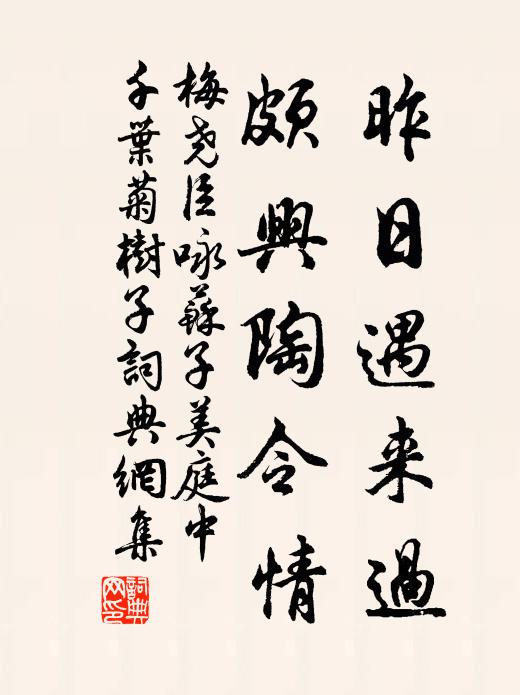 昨日遇来過
頗興陶令情
梅堯臣咏蘇子美庭中
千葉菊樹子詞典網集
詞典网印